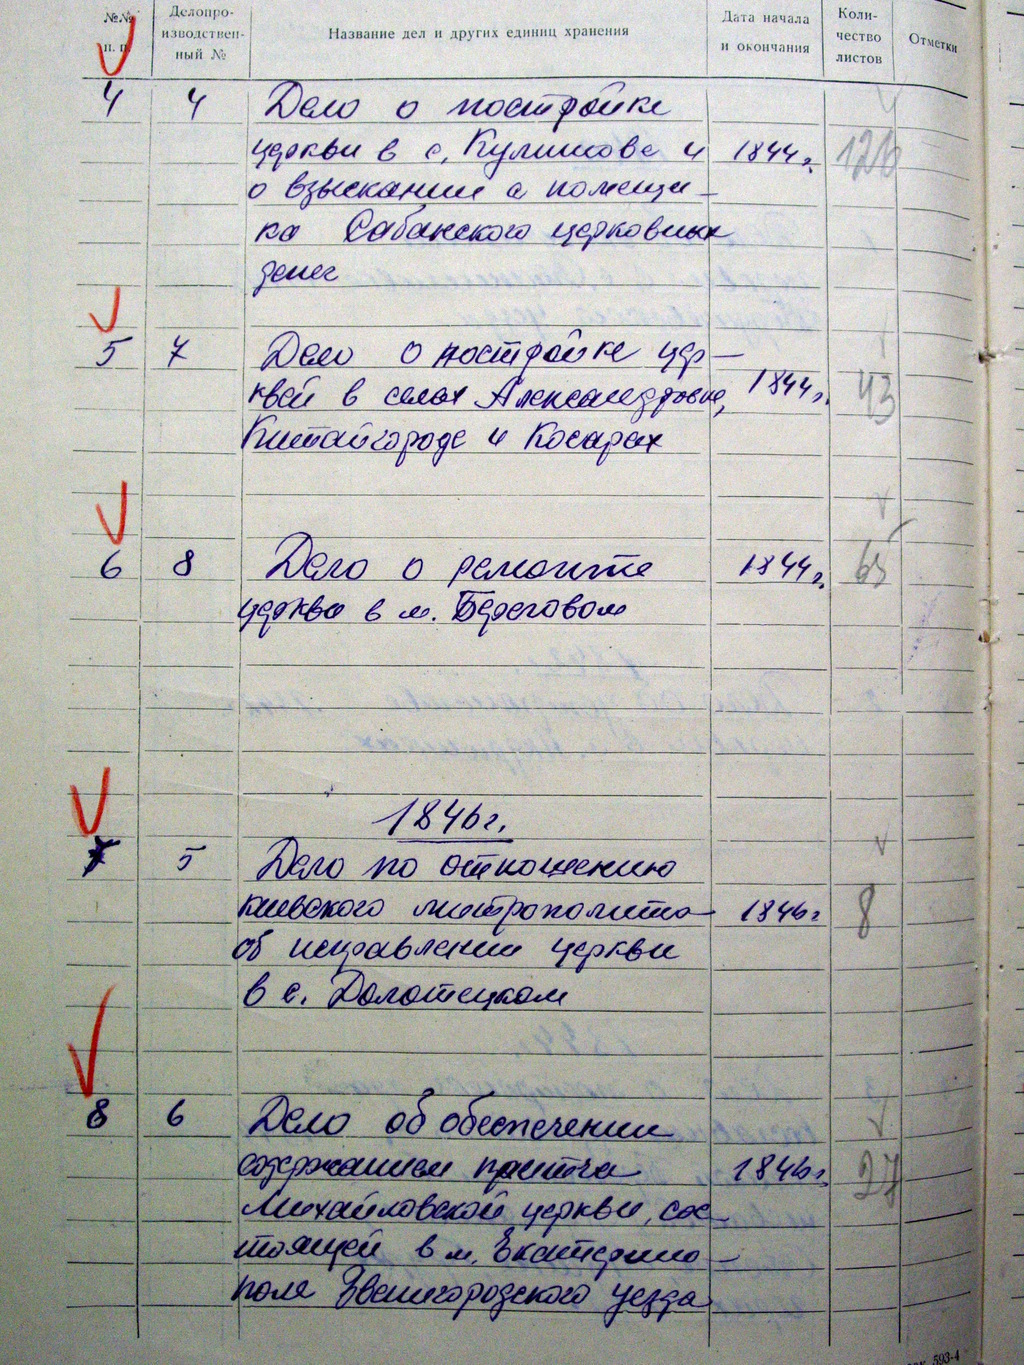 №№ п. п.
Делопро-
изводствен-
ный №
Название дел и других единиц хранения
Дата начала
и окончания
Коли-
чество
листов
Отметки
4 4 Дело о постройке
церкви в с. Куликове и 1844г. 126
о взыскании с помещи-
ка Сабанского церковных
денег
5 7 Дело о постройке цер-
квей в селах Александровке, 1844г. 43
Китайгороде и Косарах
6 8 Дело о ремонте 1844г. 65
церкви в м. Береговом
1846г.
7 5 Дело по отношению
киевского митрополита 1846г 8
об исправлении церкви
в с. Долотецком
8 6 Дело об обеспечении
содержанием причта 1846г. 27
Михайловской церкви, сос-
тоящей в м. Екатерино-
поле Звенигородского уезда
593-4